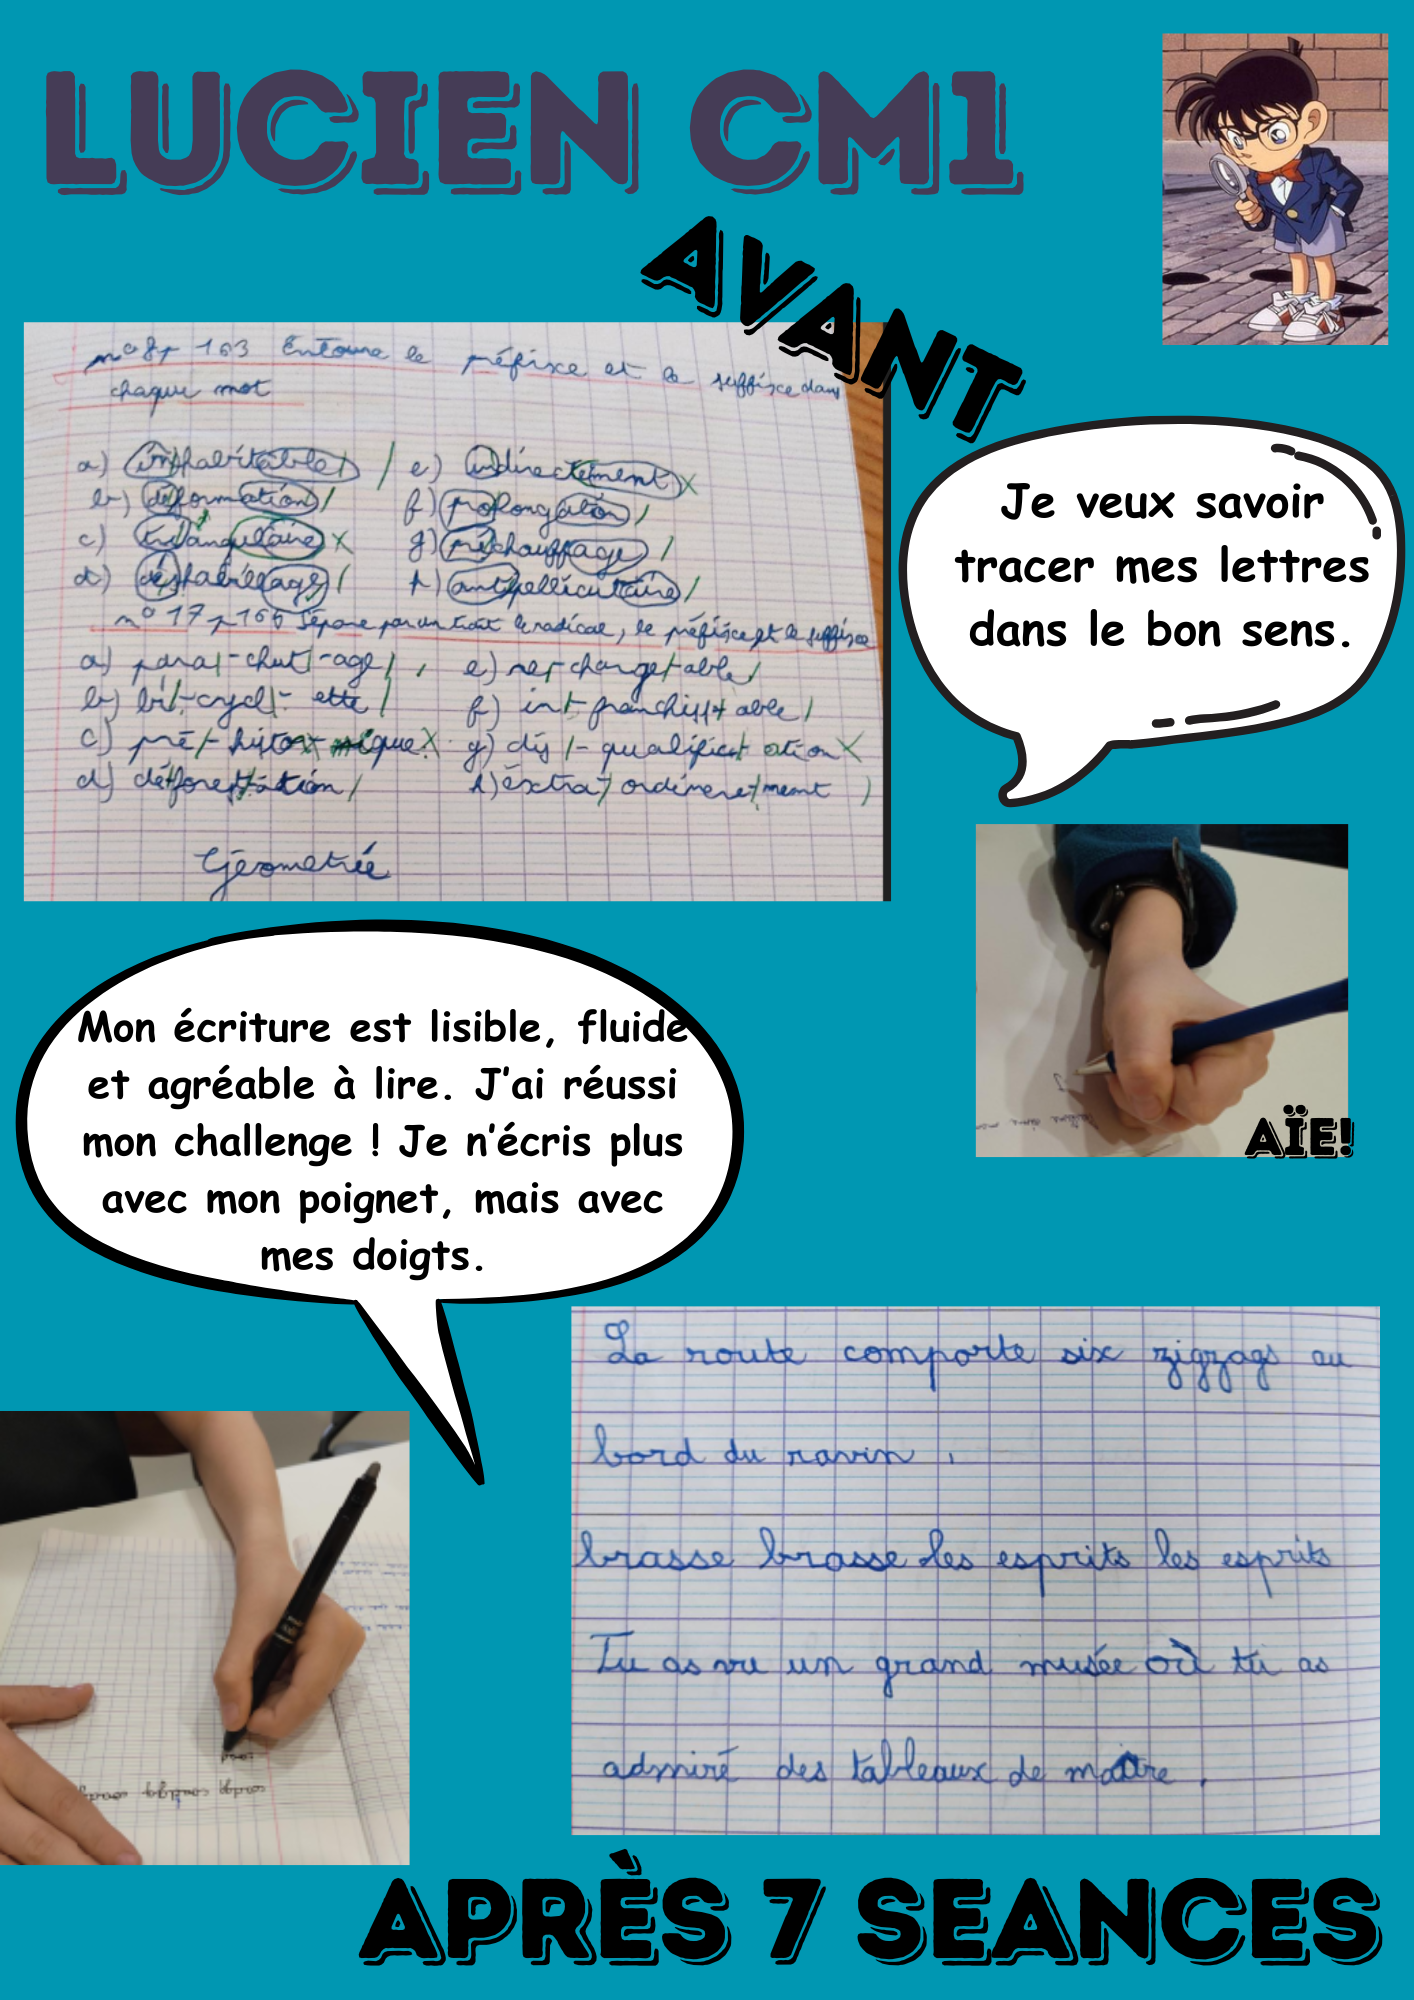 LUCIEN CM1
AVANT
n° 8 p 163 Entoure le préfixe et le suffixe dans
chaque mot
a) inhabitable
b) déformation
c) triangulaire
d) déshabillage
e) indirectement
f) prolongation
g) préchauffage
h) antipelliculaire
n° 17 p 164 Sépare par un trait le radical, le préfixe et le suffixe
a) para-chut-age
b) bi-cycl-ette
c) pré-histo-ique
d) déforestation
e) re changeable
f) in franchiss able
g) dis - qualificat ation
h) extra ordinere ment
Géometrie
Je veux savoir
tracer mes lettres
dans le bon sens.
AÏE!
Mon écriture est lisible, fluide
et agréable à lire. J'ai réussi
mon challenge ! Je n'écris plus
avec mon poignet, mais avec
mes doigts.
La route comporte six zigzags au
bord du ravin.
brasse brasse les esprits les esprits
Tu as vu un grand musée où tu as
admiré des tableaux de maître.
APRÈS 7 SEANCES